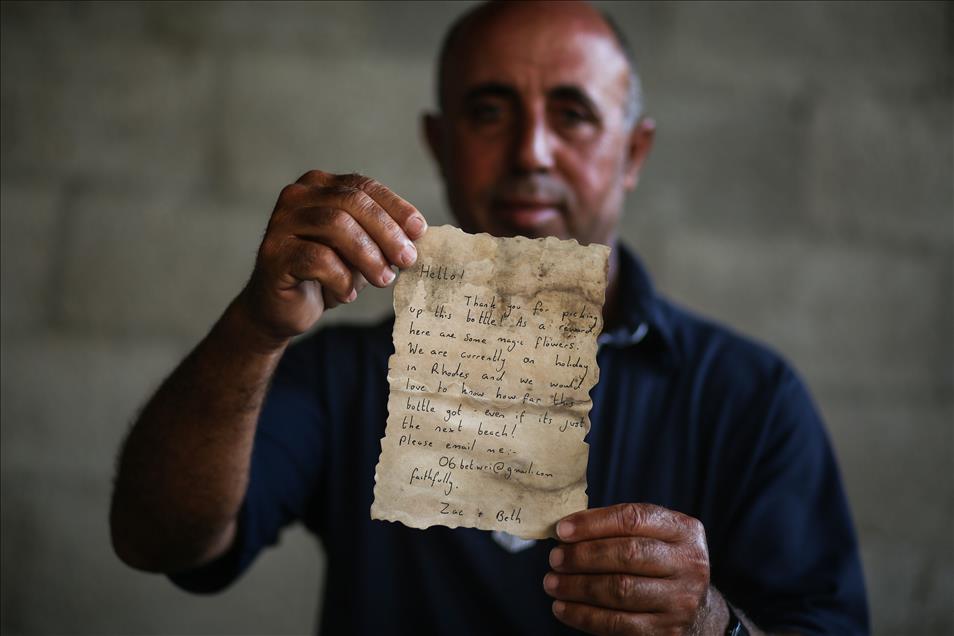 Hello!
Thank you for picking
up this bottle! As a reward
here are some magic flowers.
We are currently on holiday
in Rhodes and we would
love to know how far this
bottle got - even if its just
the next beach!
Please email me:-
06.bet.wri@gmail.com
faithfully.
Zac + Beth